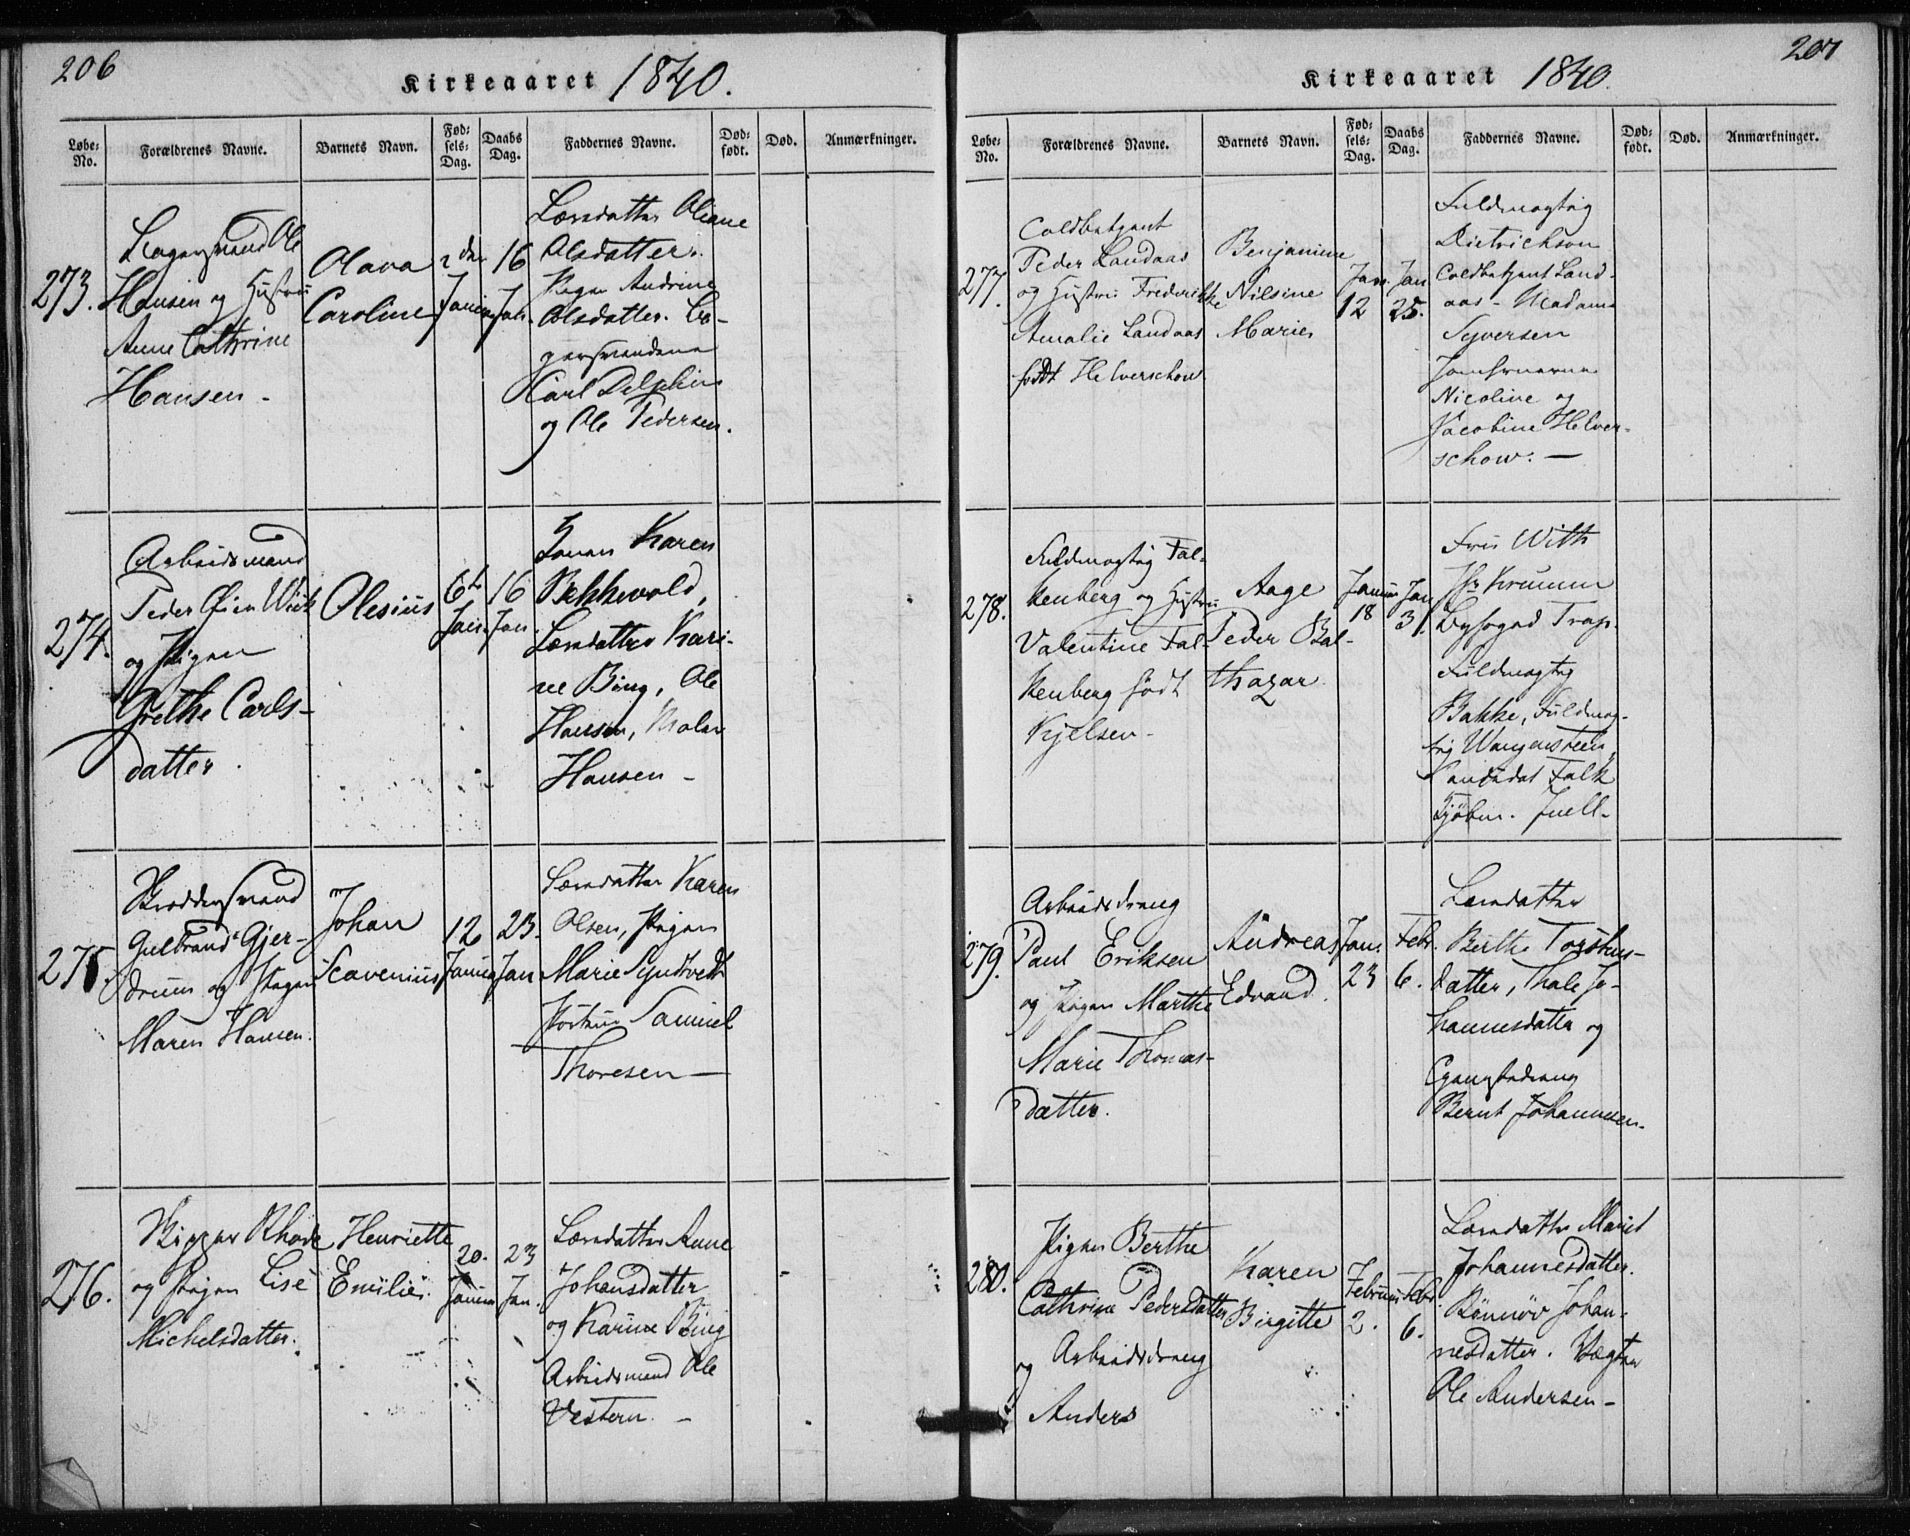 206
Kirkeaaret 1840.
Løbe-No. Forældrenes Navne. Barnets Navn. Fødsels-Dag. Daabs Dag. Faddernes Navne. Dødfødt. Død. Anmærkninger.
273.
Ole
Hansen og Hustru
Anne Cathrine
Hansen -
Olava
Caroline
2den
Januar
16
Jan.
Oliane
Olsdatter.
Pigen Andrine
Olsdatter. Lo-
germændene
Carl Delphin
og Ole Pedersen.
274.
Arbeidsmand
Peder Øien Wiik
og Pigen
Grethe Carls-
datter.
Olesius
6te
Jan.
16
Jan.
Konen Karen
Bekkevold,
Kari-
ne Bing, Ole
Hansen, Maler
Hansen -
275.
Skræddersvend
Gulbrand Gjer-
drum og Pigen
Maren Hansen.
Johan
Scavenius
12
Januar
23.
Jan
Karen
Olsen, Pigen
Marie Syndtvedt
Samuel
Thoresen -
276.
Skipper Rhode
og Pigen Lise
Michelsdatter.
Henriette
Emilie.
20.
Januar
23
Jan.
Anne
Johansdatter
og Karine Bing
Arbeidsmand Ole
Vestern. -
207
Kirkeaaret 1840.
Løbe-No. Forældrenes Navne. Barnets Navn. Fødsels-Dag. Daabs Dag. Faddernes Navne. Dødfødt. Død. Anmærkninger.
277.
Toldbetjent
Peder Landaas
og Hustru Frederikke
Amalie Landaas
født Helverschow
Benjamine
Nilsine
Marie
Jan.
12
Jan
25.
Fuldmægtig
Dietrichson
Toldbetjent Land-
aas - Madame
Syversen
Jomfruerne
Nicoline og
Jacobine Helver-
schow. -
278.
Fuldmægtig Fal-
kenberg og Hustru
Valentine Fal-
kenberg født
Kjelsen -
Aage
Peder Bal-
thazar
Januar
18
Jan
31.
Fru With
Jfr Krumm
Byfoged Trap.
Fuldmægtig
Bakke, Fuldmæg-
tig Wangensteen,
Candidat Falk
Kjøbm. Juell.
279.
Arbeidsdreng
Paul Eriksen
og Pigen Marthe
Marie Thomas-
datter.
Andreas
Edvard.
Jan.
23
Febr.
6.
Berthe
datter, Thale Jo-
hannesdatter og
Bernt Johannesen.
280.
Pigen Berthe
Cathrine Pedersdatter
og Arbeidsdreng
Anders
Karen
Birgitte
Februar
2.
Febr
6.
Johannesdatter.
Rønnøv Johan-
nesdatter. Vægter
Ole Andersen -